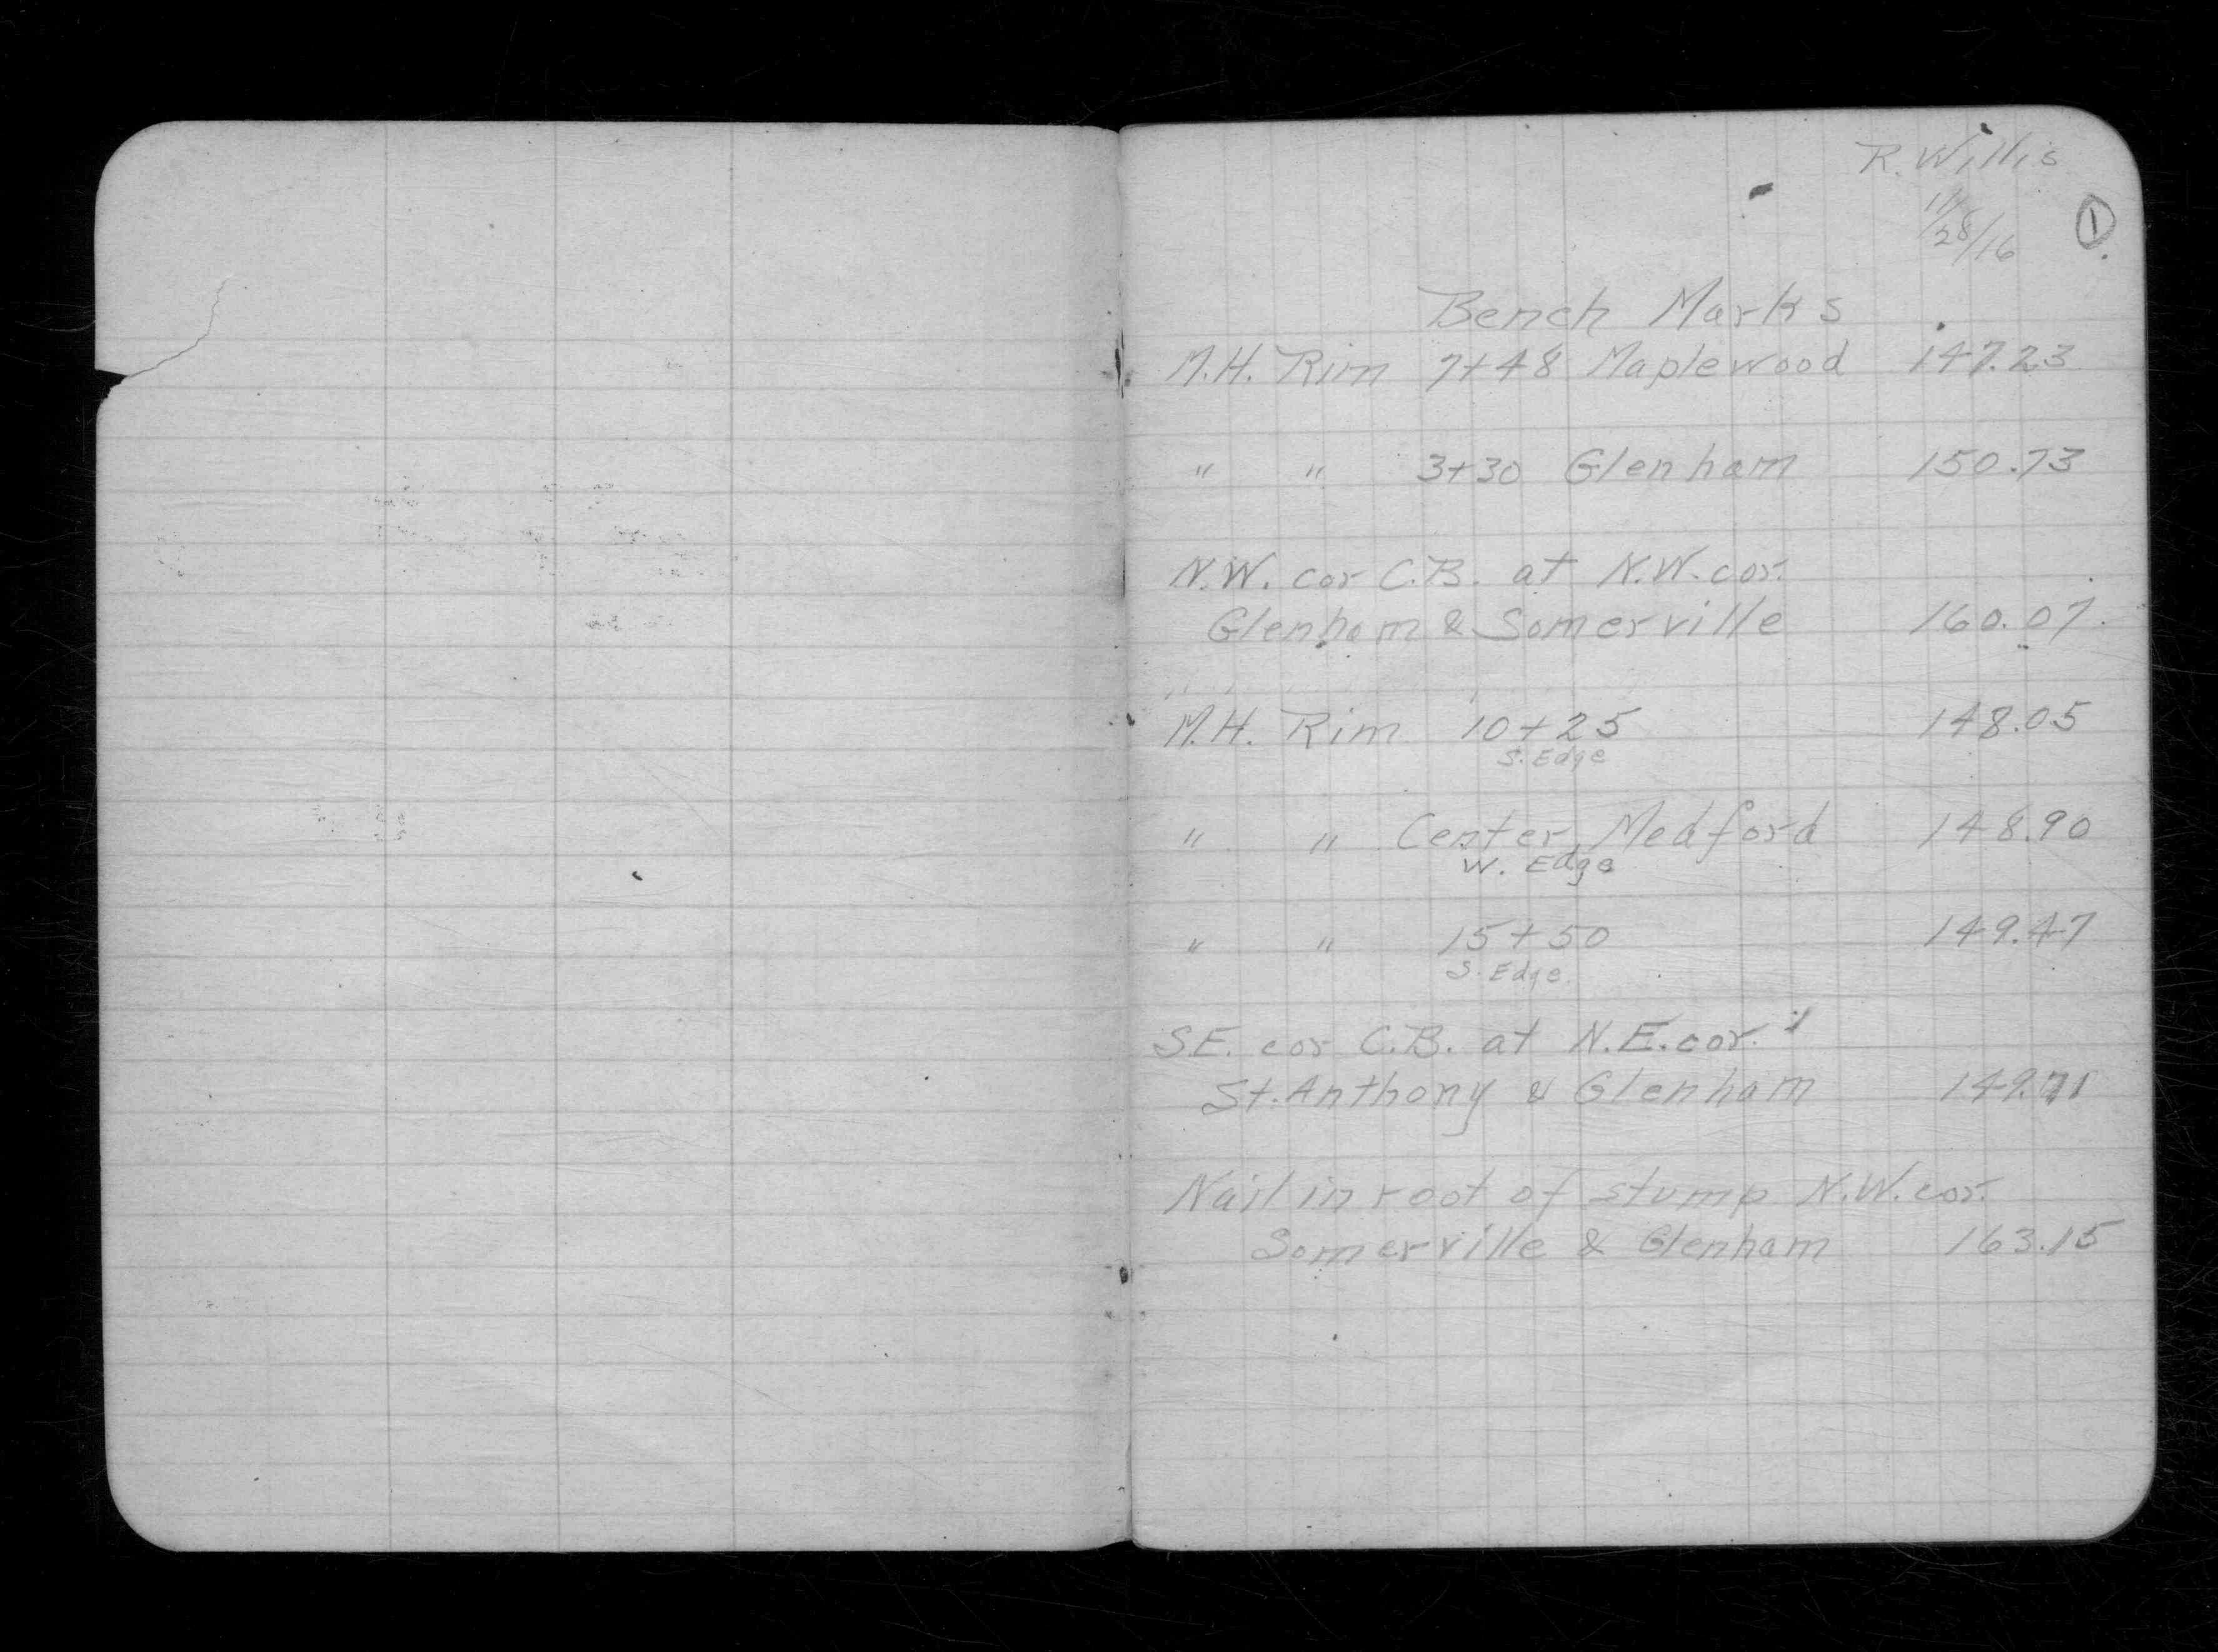 R. Willis
11/28/16
1
Bench Marks
M.H. Rim 7+48 Maplewood 147.23
" " 3+30 Glenham 150.73
N.W. cor C.B. at N.W. cor.
Glenham & Somerville 160.07
M.H. Rim 10+25 148.05
S. Edge
" " Center Medford 148.90
W. Edge
" " 15+50 149.47
S. Edge
S.E. cor C.B. at N.E. cor.
St. Anthony & Glenham 149.71
Nail in root of stump N.W. cor.
Somerville & Glenham 163.15